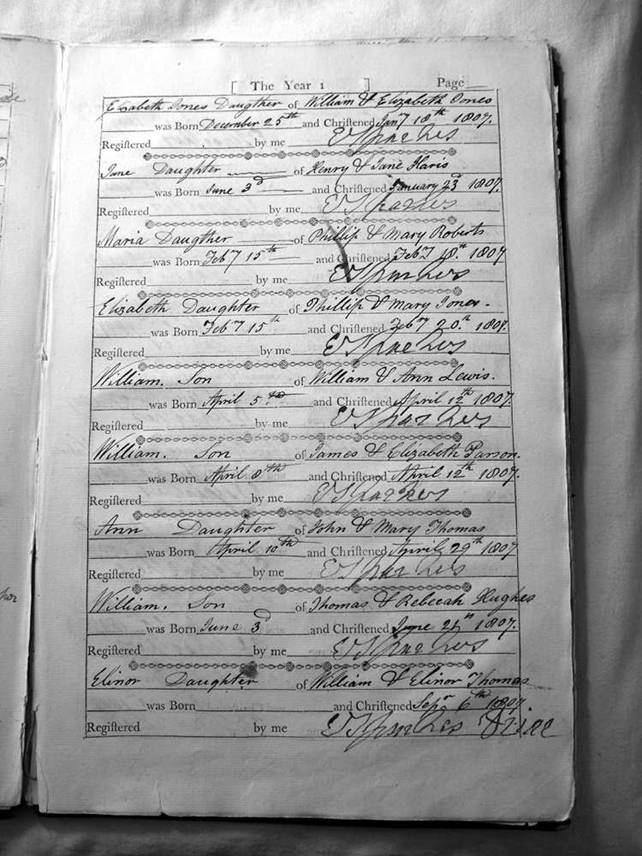 [ The Year 1 ] Page
Elizabeth Jones Daugther of William & Elizabeth Jones
was Born December 25th and Chriſtened Jany 18th 1807.
Regiſtered by me
Jane Daughter of Henry & Jane Haris
was Born June 3d and Chriſtened January 23 1807
Regiſtered by me
Maria Daugther of Phillip & Mary Roberts
was Born Feby 15th and Chriſtened Feby 18th 1807
Regiſtered by me
Elizabeth Daughter of Phillip & Mary Jones.
was Born Feby 15th and Chriſtened Feby 20th 1807.
Regiſtered by me
William. Son of William & Ann Lewis.
was Born April 5 and Chriſtened April 12th 1807.
Regiſtered by me
William. Son of James & Elizabeth Parson.
was Born April 8th and Chriſtened April 12th 1807.
Regiſtered by me
Ann Daughter of John & Mary Thomas
was Born April 10th and Chriſtened April 29th 1807
Regiſtered by me
William. Son of Thomas & Rebecah Hughes
was Born June 3d and Chriſtened June 1807.
Regiſtered by me
Elinor Daughter of William & Elinor Thomas
was Born and Chriſtened Sepr 6th 1807.
Regiſtered by me